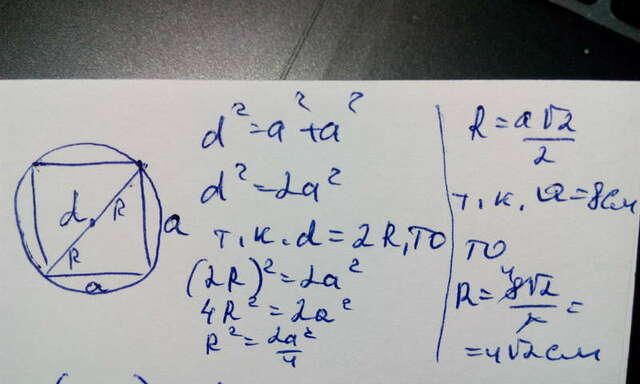 d
R
R
a
a
d² = a² + a²
d² = 2a²
т.к. d = 2R, то
(2R)² = 2a²
4R² = 2a²
R² = 2a²/4
R = a√2/2
т.к. a = 8см
то
R = 8√2/2 =
= 4√2 см